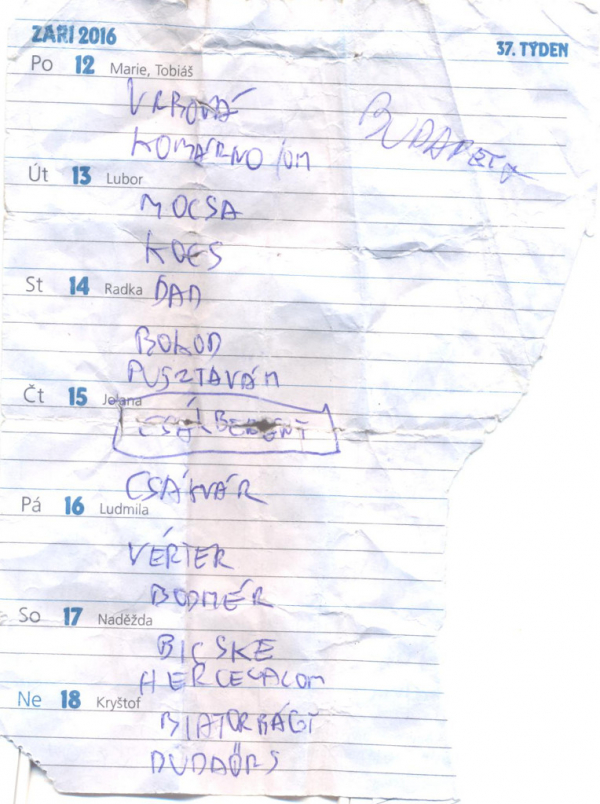 ZÁŘÍ 2016
37. TÝDEN
Po 12 Marie, Tobiáš
VRBOVÁ
BUDAPEŠŤ
KOMÁRNO
Út 13 Lubor
MOCSA
KOCS
St 14 Radka
DAD
BOKOD
PUSZTAVÁM
Čt 15 Jelena
CSÁKBERÉNY
CSÁKVÁR
Pá 16 Ludmila
VÉRTER
BODMÉR
So 17 Naděžda
BICSKE
HERCEGALOM
Ne 18 Kryštof
BIATORBÁGY
BUDAÖRS